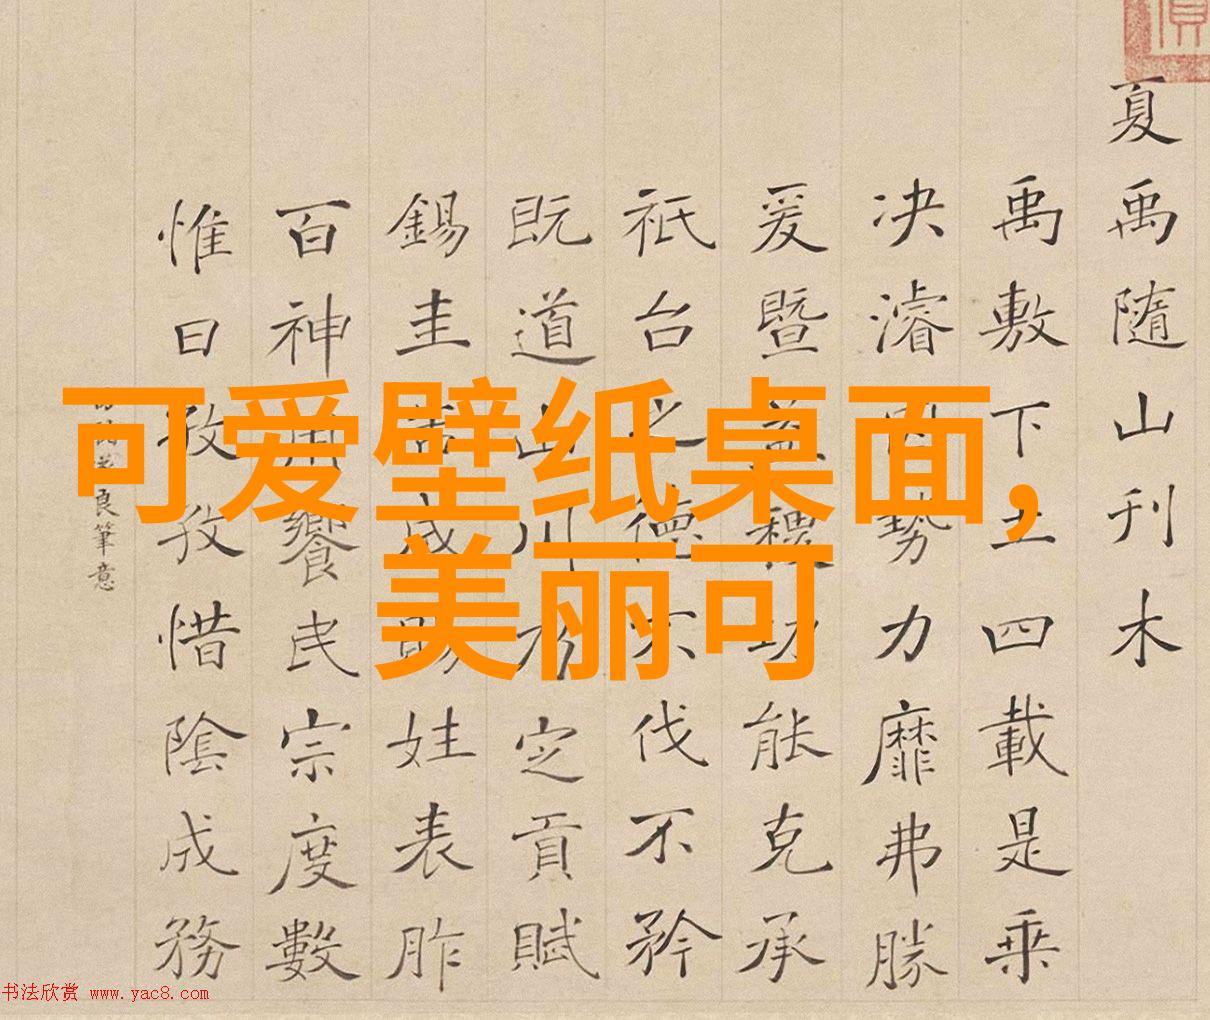 可爱壁纸桌面,
美丽可
夏禹隨山刊木
禹敷下土四載是乘
决濬勢力靡弗勝
爰暨益稷功能克承
祇台之德不伐不矜
既道山川乃定貢賦
錫圭告成賜姓表胙
百神用饗民宗度數
惟日孜孜惜陰成務
良筆意
书法欣赏 www.yac8.com